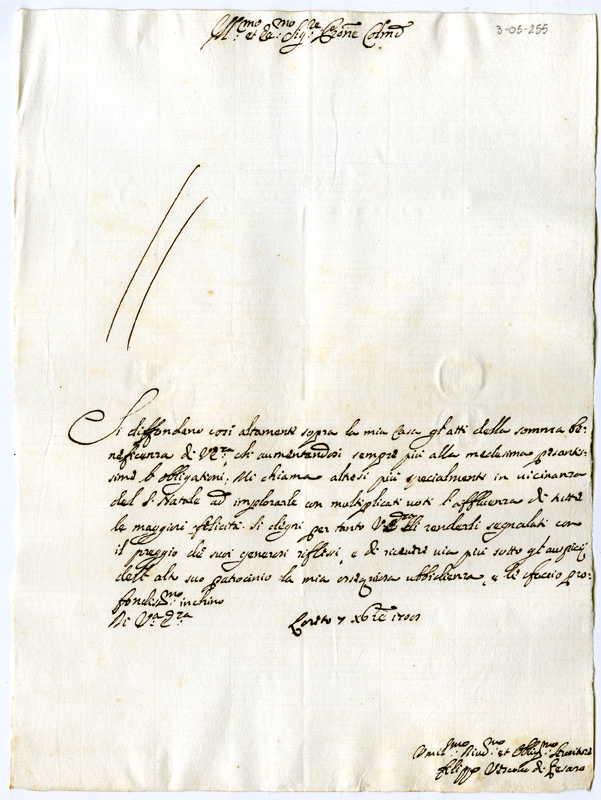 3-05-255
Ill.mo et Ecc.mo Sig.re Prone Colmo
Si diffondano così altamente sopra la mia Casa gl'atti della somma be:
neficenza di V. che aumentandosi sempre più alla medesima pesantis:
sime le obligationi; Mi chiama altresi più specialmente in vicinanza
del S. Natale ad implorarle con multiplicati voti l'affluenza di tutte
le maggiori felicità. Si degni per tanto V. di renderli segnalati con
il preggio de suoi generosi riflessi, e di ricevere via più sotto gl'auspicij
dell'alto suo patrocinio la mia ossequiosa ubbidienza, e le faccio pro:
fondiss.mo inchino
Di V.
Loreto 7 Xbre
Umil.mo Divo.mo et Obblig.mo Servitore
Filippo Vescovo di Pesaro